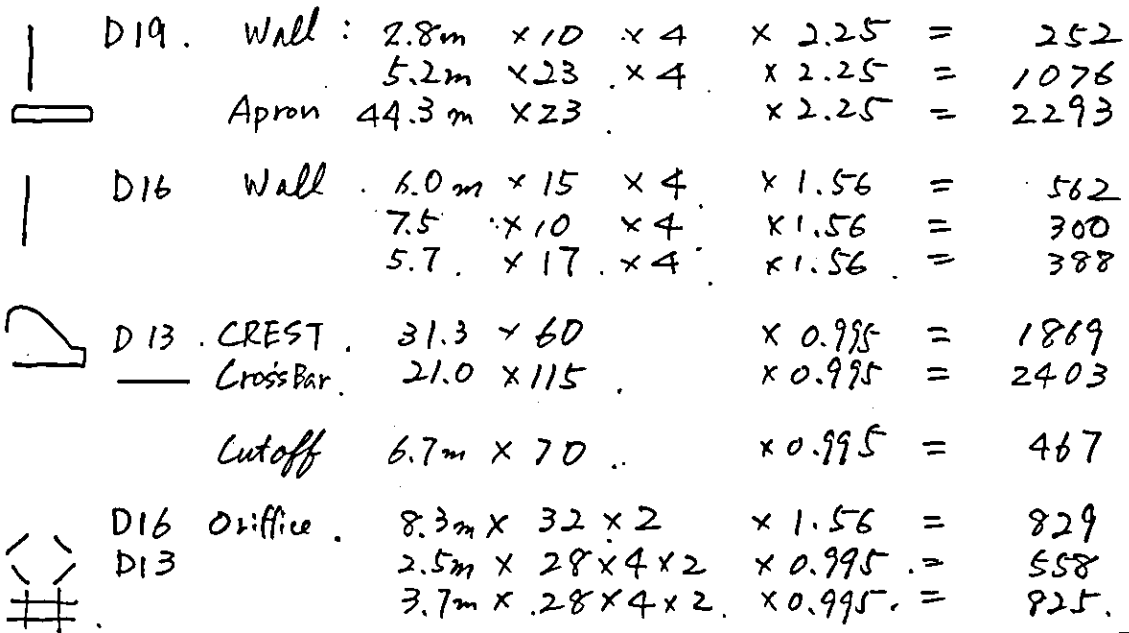 D19. Wall: 2.8m ×10 × 4 × 2.25 = 252
5.2m ×23 × 4 × 2.25 = 1076
Apron 44.3 m ×23 × 2.25 = 2293
D16 Wall. 6.0 m × 15 × 4 × 1.56 = 562
7.5 × 10 × 4 × 1.56 = 300
5.7. × 17. × 4 × 1.56. = 388
D13. CREST. 31.3 × 60 × 0.995 = 1869
CrossBar. 21.0 ×115 × 0.995 = 2403
Cutoff 6.7m × 70 .. × 0.995 = 467
D16 Oriffice. 8.3m × 32 × 2 × 1.56 = 829
D13 2.5m × 28×4×2 × 0.995. = 558
3.7m × 28×4×2. × 0.995. = 825.